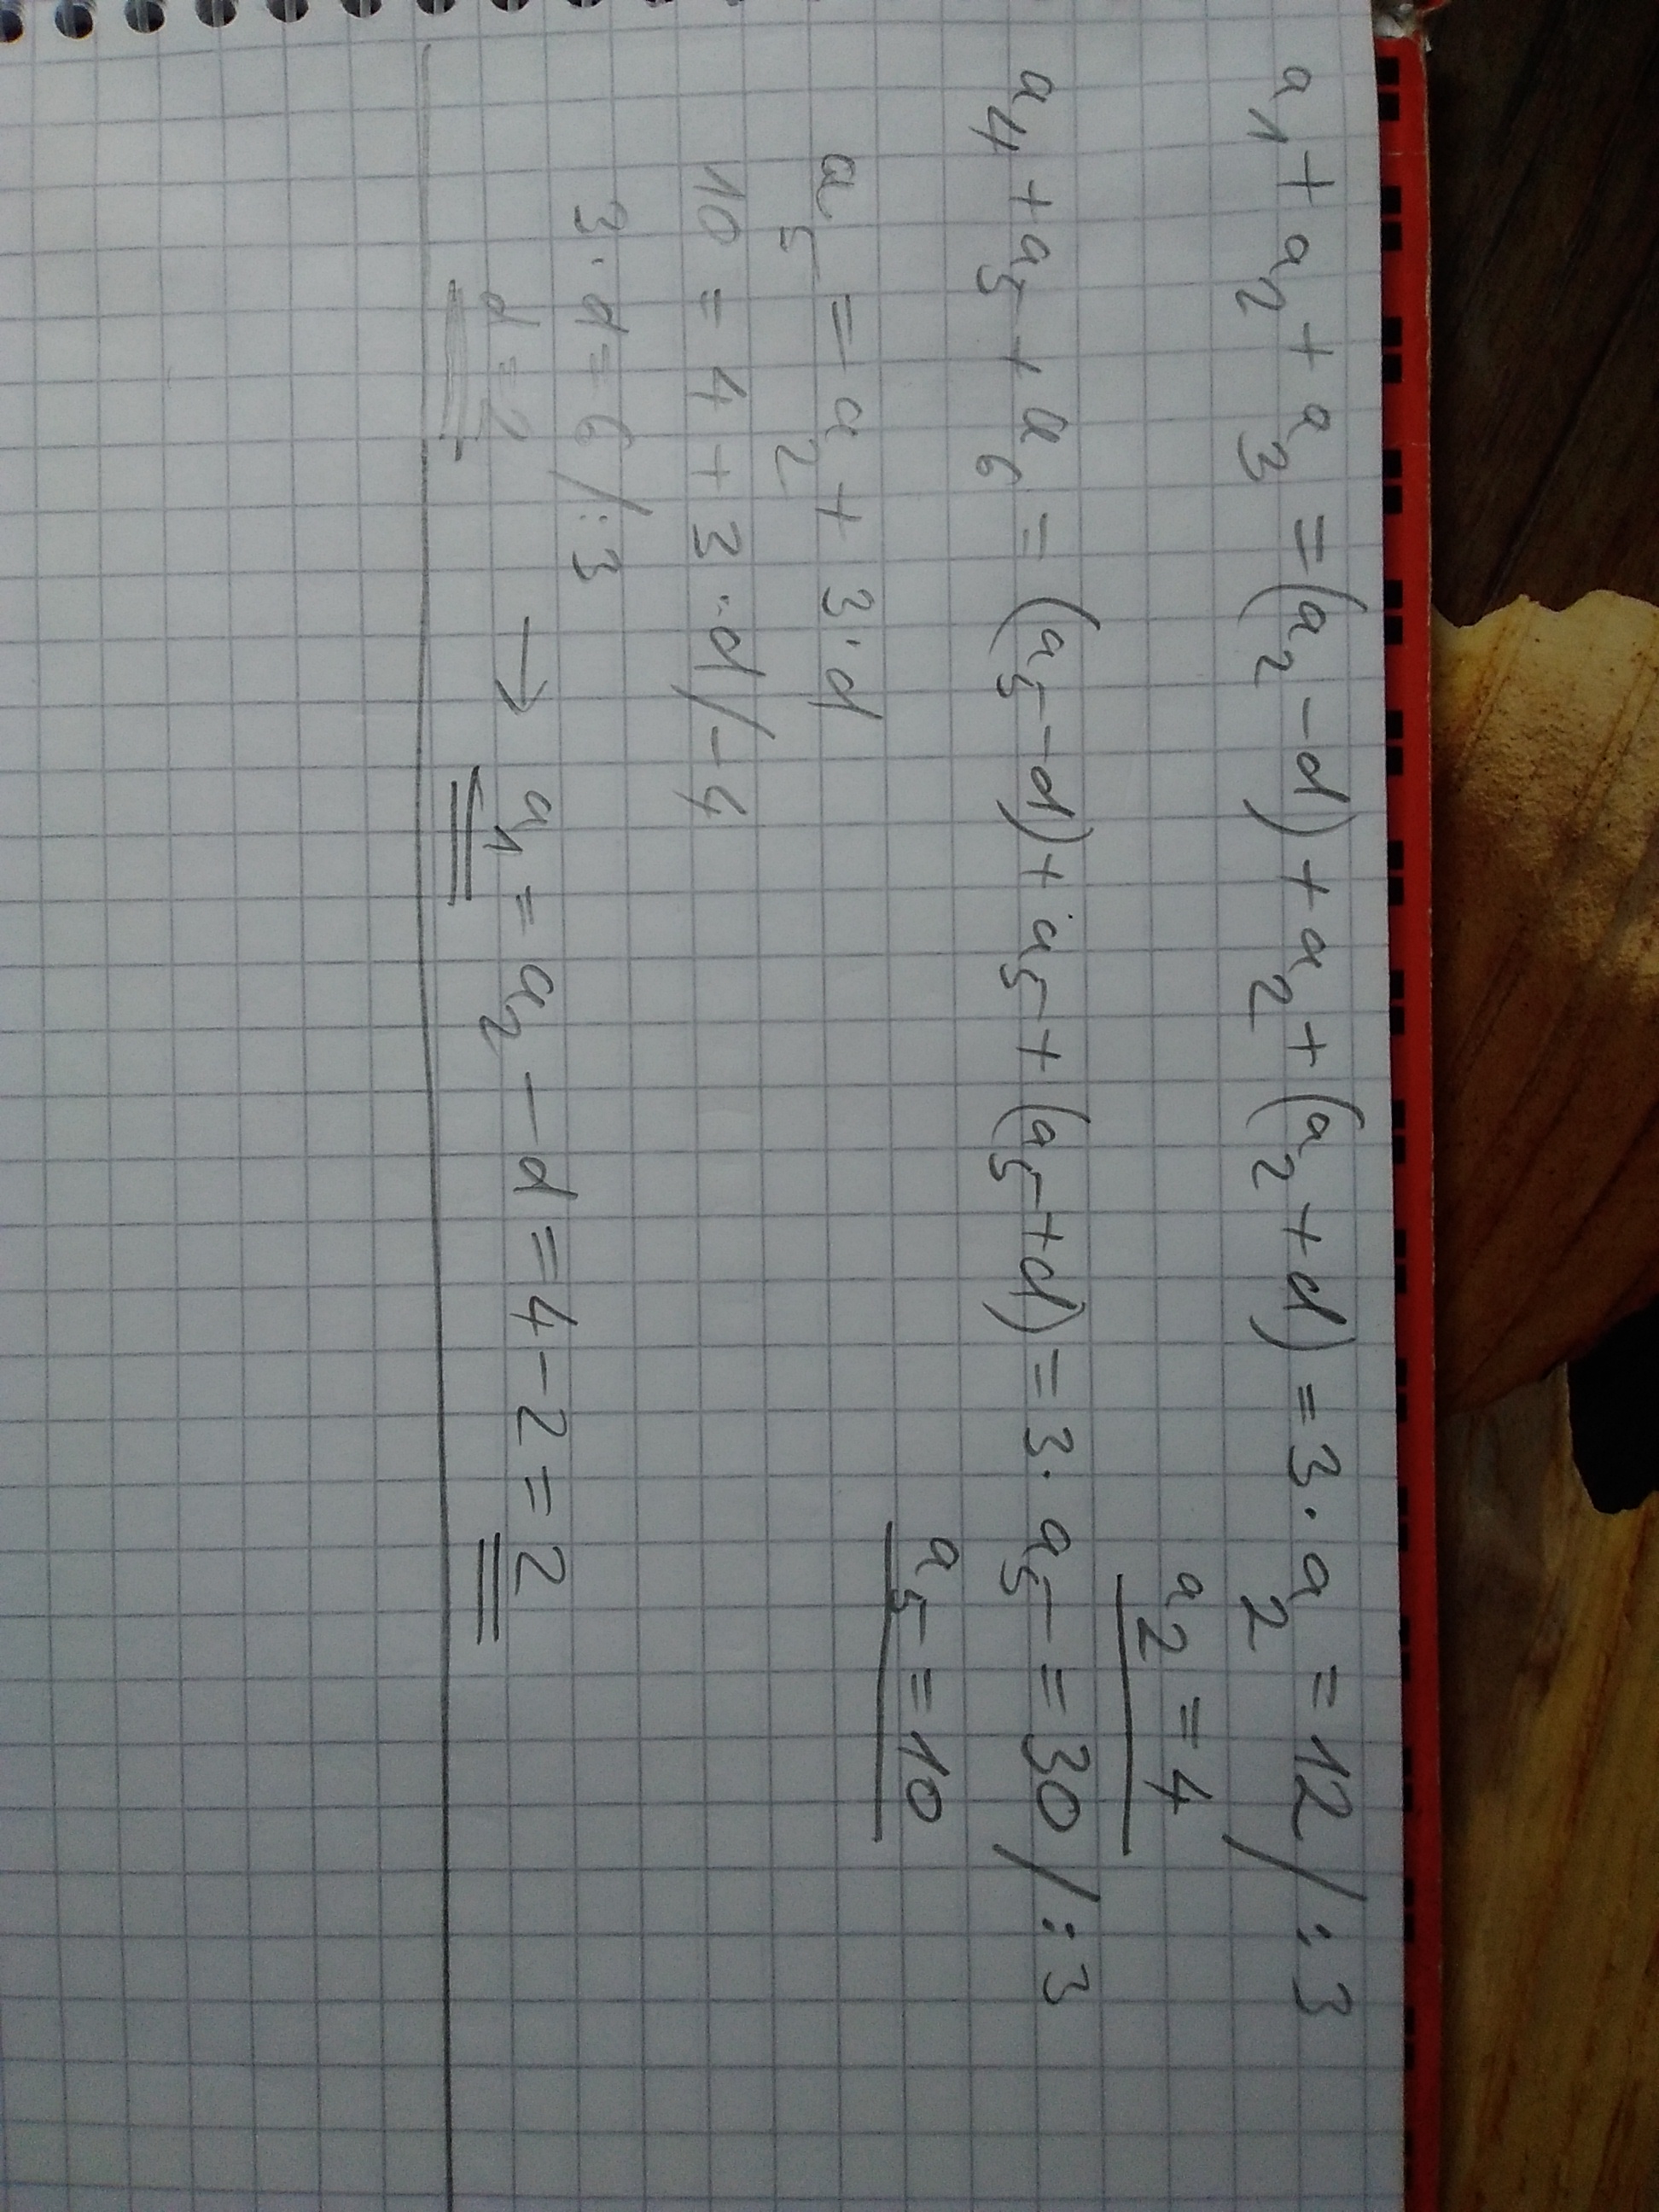 a₁ + a₂ + a₃ = (a₂ - d) + a₂ + (a₂ + d) = 3 · a₂ = 12 / : 3
a₂ = 4
a₄ + a₅ + a₆ = (a₅ - d) + a₅ + (a₅ + d) = 3 · a₅ = 30 / : 3
a₅ = 10
a₅ = a₂ + 3 · d
10 = 4 + 3 · d / - 4
3 · d = 6 / : 3
d = 2 → a₁ = a₂ - d = 4 - 2 = 2